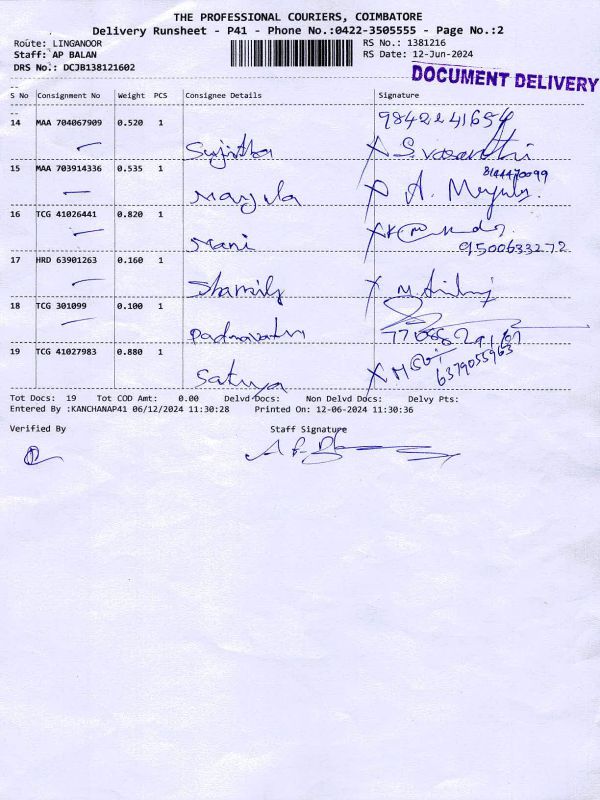 THE PROFESSIONAL COURIERS, COIMBATORE
Delivery Runsheet - P41 - Phone No.:0422-3505555 - Page No.:2
Route: LINGANOOR RS No.: 1381216
Staff: AP BALAN RS Date: 12-Jun-2024
DRS No.: DCJB138121602
DOCUMENT DELIVERY
S No Consignment No Weight PCS Consignee Details Signature
14 MAA 704067909 0.520 1
Sujitha S. Vasanthi
15 MAA 703914336 0.535 1 8144470099
Manjula A.
16 TCG 41026441 0.820 1
Mani 9500633272
17 HRD 63901263 0.160 1
Shamily M.
18 TCG 301099 0.100 1
Padmavathi
19 TCG 41027983 0.880 1
Sathya 6379055963
Tot Docs: 19 Tot COD Amt: 0.00 Delvd Docs: Non Delvd Docs: Delvy Pts:
Entered By :KANCHANAP41 06/12/2024 11:30:28 Printed On: 12-06-2024 11:30:36
Verified By Staff Signature